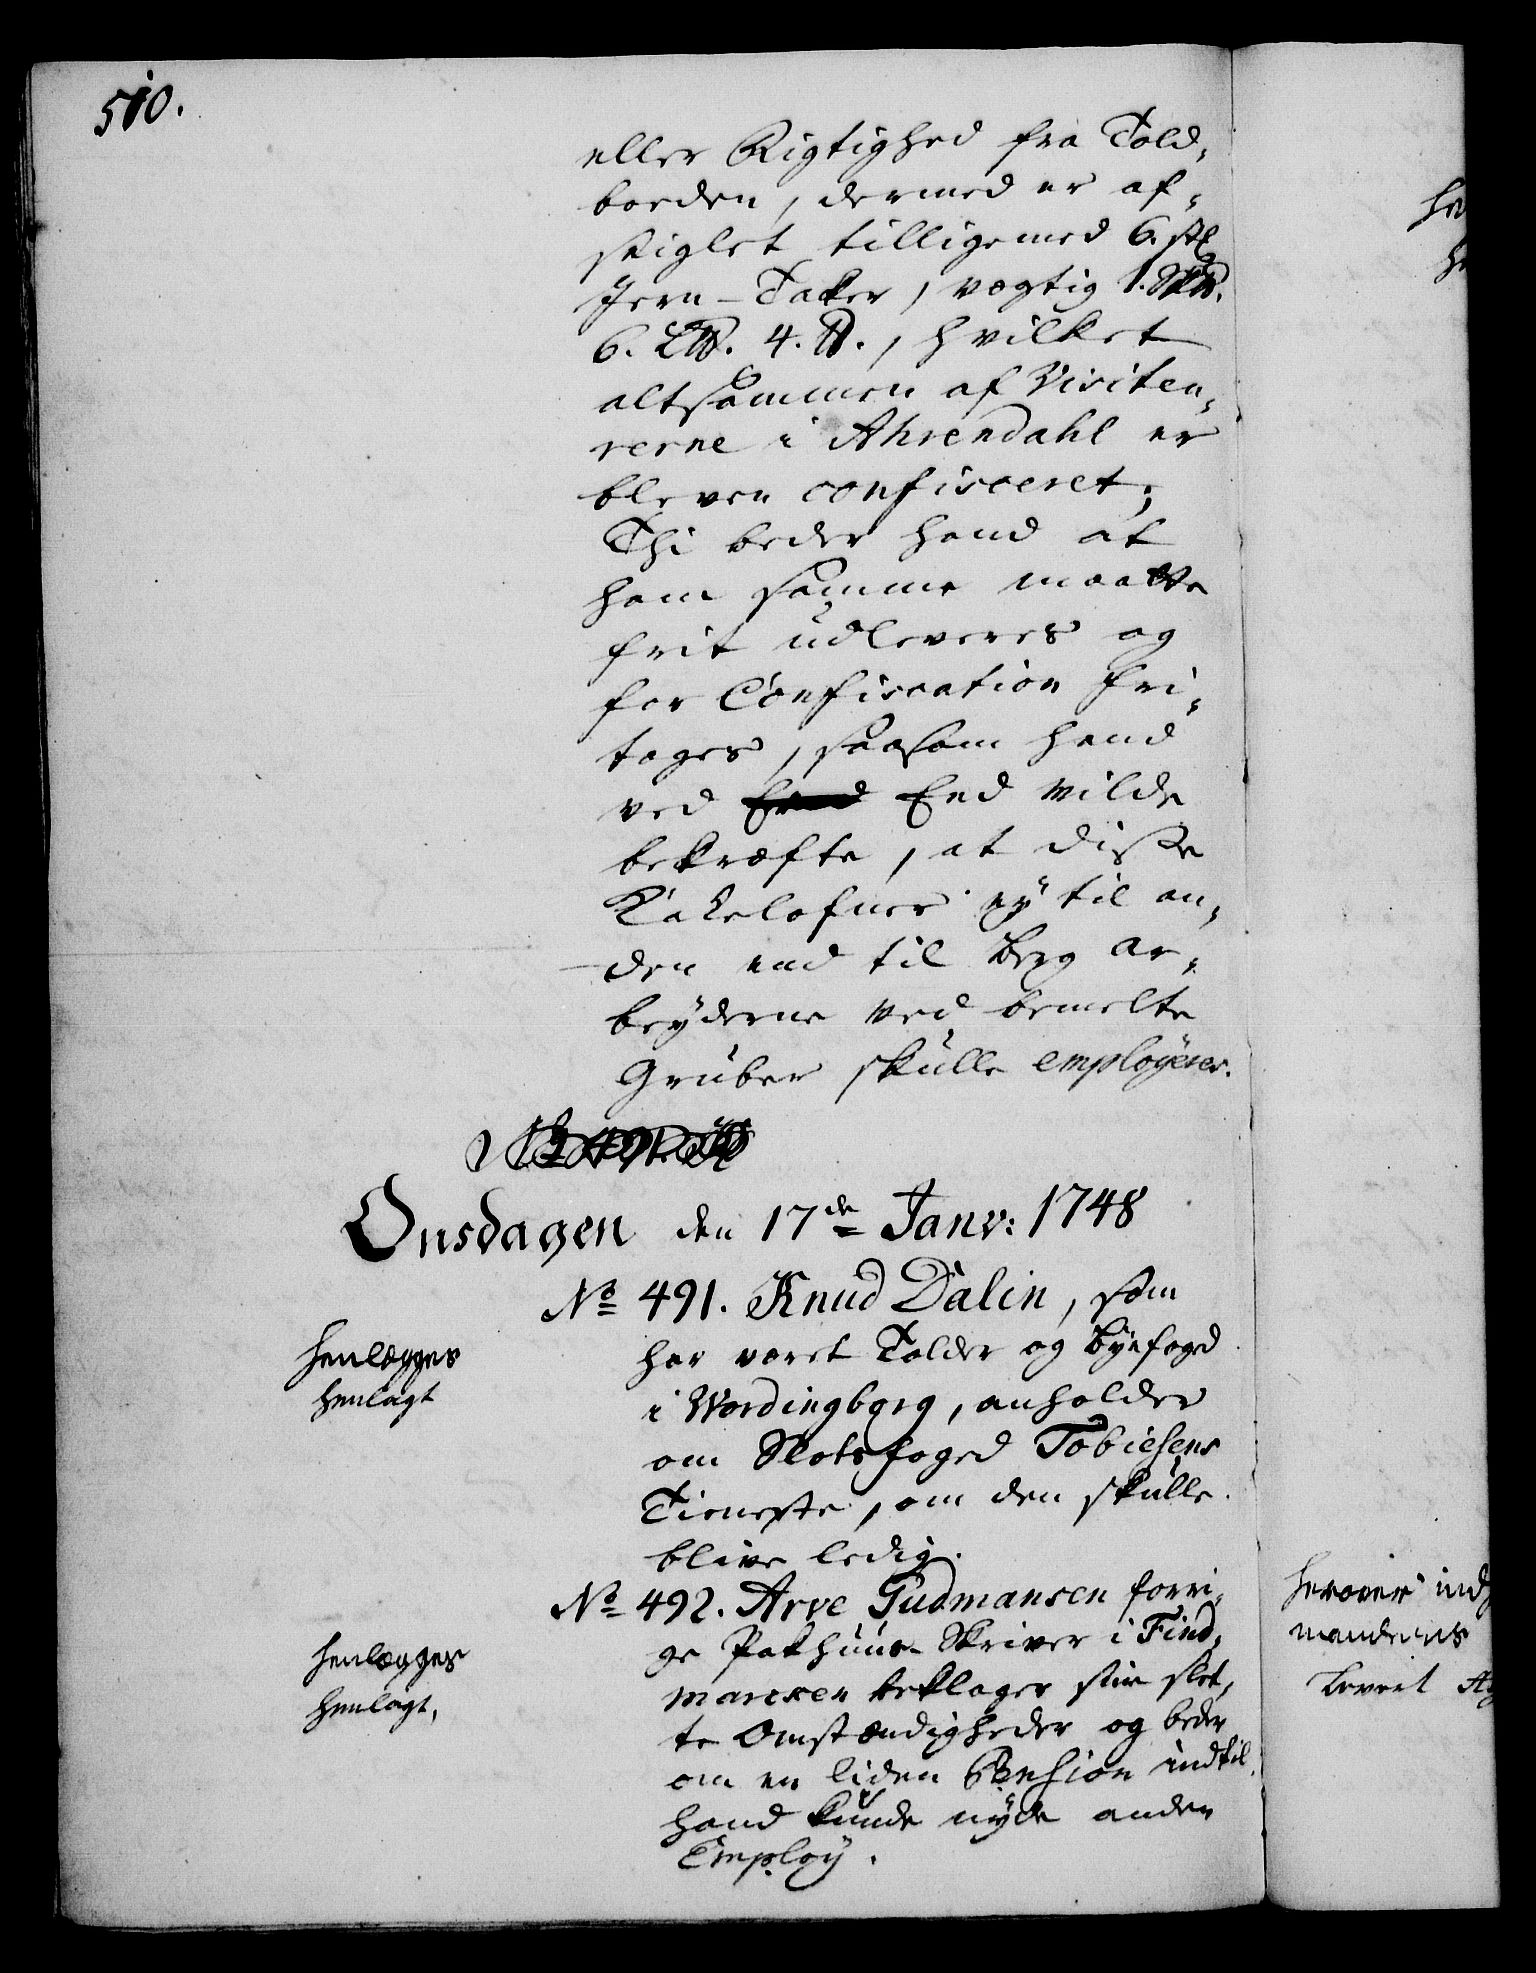 510.
eller Rigtighed fra Told-
boeden, dermed er af-
seiglet tilligemed 6. stk
Jern-Takker, vegtig 1. Sk℔.
6. L℔. 4. ℔., hvilket
altsammen af Visiteu-
rerne i Ahrendahl er
bleven confisceret;
Thi beder hand at
ham samme maatte
frit udleveres og
for Confiscation fri-
tages, saasom hand
ved Eed vilde
bekræfte, at disse
Kakelofner ey til an-
den end til Berg Ar-
beyderne ved bemelte
Gruber skulle employeres.
Onsdagen den 17de Janv: 1748
No 491. Knud Dalin, som
har været Tolder og Byefoged
i Wordingborg, anholder
om Slotsfoged Tobiesens
Tieneste, om den skulle
blive ledig.
henlægges
henlagt
No 492. Arve Gudmansen forri-
ge Pakhuus-Skriver i Find-
marcken beklager sine slet-
te Omstændigheder og beder
om en liden Pension indtil
hand kunde nyde anden
Employ.
henlægges
henlagt,
herover ind
mandens
Levert